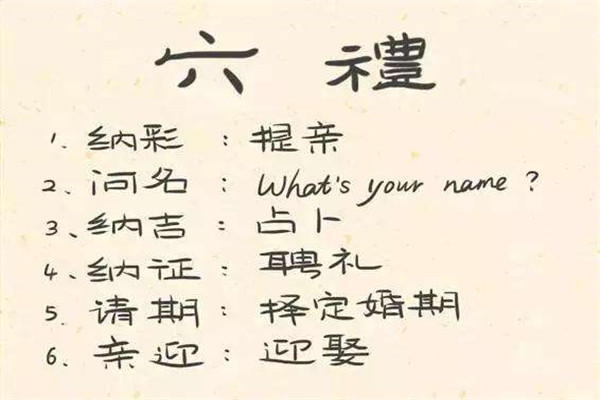 六禮
1. 纳彩：提亲
2、问名：What's your name？
3、纳吉：占卜
4、纳证：聘礼
5. 请期：择定婚期
6、亲迎：迎娶